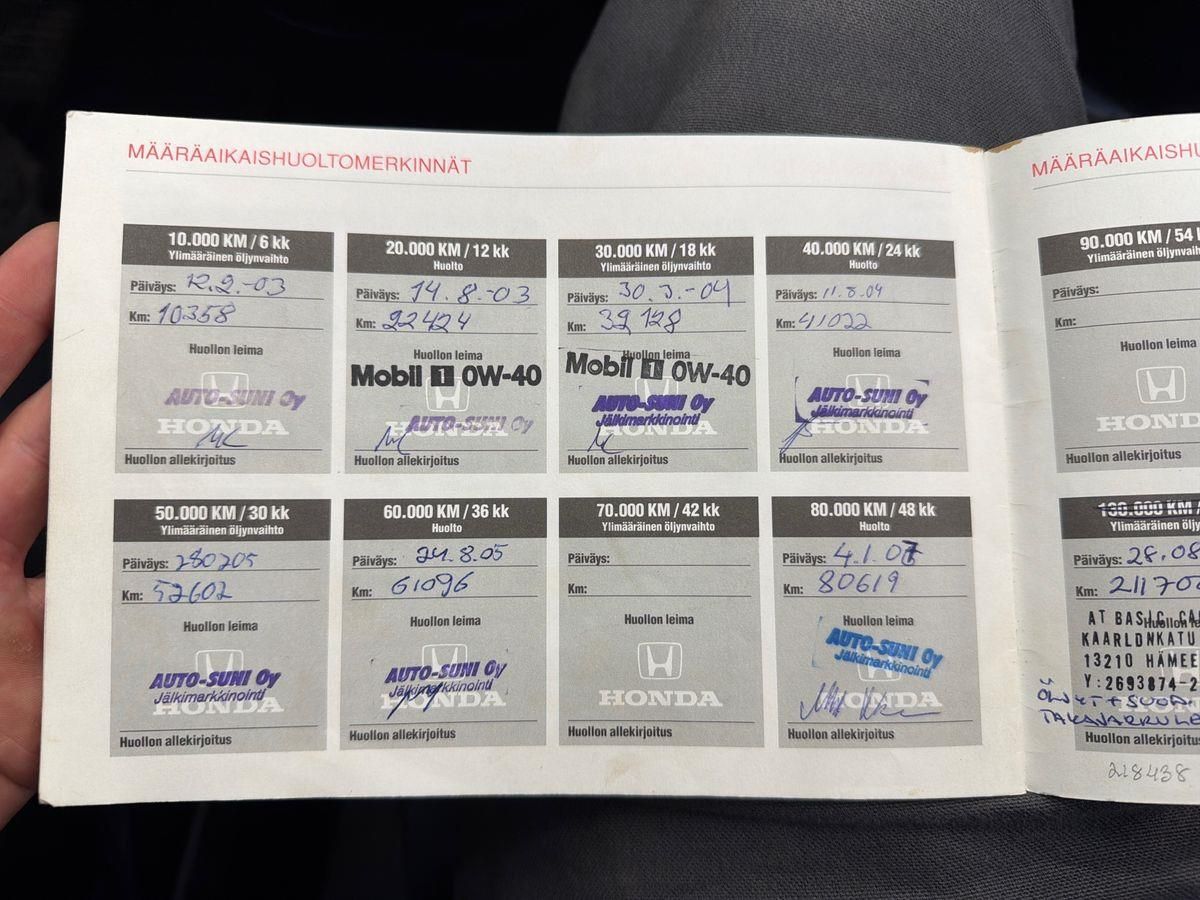 MÄÄRÄAIKAISHUOLTOMERKINNÄT
10.000 KM / 6 kk
Ylimääräinen öljynvaihto
Päiväys: 12.2.-03
Km: 10358
Huollon leima
AUTO-SUNI Oy
HONDA
Huollon allekirjoitus
20.000 KM / 12 kk
Huolto
Päiväys: 14.8.-03
Km: 22424
Huollon leima
Mobil 1 0W-40
AUTO-SUNI Oy
HONDA
Huollon allekirjoitus
30.000 KM / 18 kk
Ylimääräinen öljynvaihto
Päiväys: 30.3.-04
Km: 32128
Huollon leima
Mobil 1 0W-40
AUTO-SUNI Oy
Jälkimarkkinointi
HONDA
Huollon allekirjoitus
40.000 KM / 24 kk
Huolto
Päiväys: 11.8.04
Km: 41022
Huollon leima
AUTO-SUNI Oy
Jälkimarkkinointi
HONDA
Huollon allekirjoitus
50.000 KM / 30 kk
Ylimääräinen öljynvaihto
Päiväys: 280205
Km: 52602
Huollon leima
AUTO-SUNI Oy
Jälkimarkkinointi
HONDA
Huollon allekirjoitus
60.000 KM / 36 kk
Huolto
Päiväys: 24.8.05
Km: 61096
Huollon leima
AUTO-SUNI Oy
Jälkimarkkinointi
HONDA
Huollon allekirjoitus
70.000 KM / 42 kk
Ylimääräinen öljynvaihto
Päiväys:
Km:
Huollon leima
HONDA
Huollon allekirjoitus
80.000 KM / 48 kk
Huolto
Päiväys: 4.1.07
Km: 80619
Huollon leima
AUTO-SUNI Oy
Jälkimarkkinointi
HONDA
Huollon allekirjoitus
MÄÄRÄAIKAISHU
90.000 KM / 54
Ylimääräinen öljynv
Päiväys:
Km:
Huollon leima
HOND
Huollon allekirjoitus
100.000 KM /
Ylimääräinen öljynv
Päiväys: 28.08
Km: 21170
Huollon le
AT BASIC CA
KAARLONKATU
13210 HÄMEE
Y:2693874-2
ÖLJYT + SUOD.
TAKAJARRULE
Huollon allekirjoitus
218438